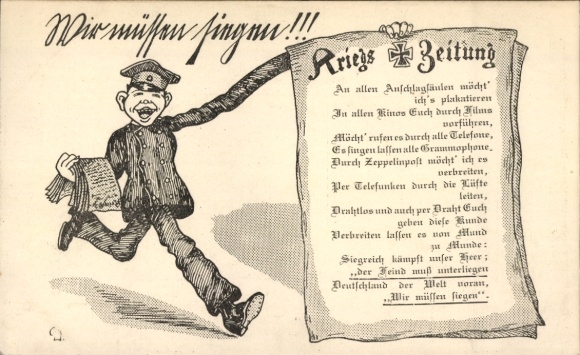 Wir müssen siegen!!!
Kriegs Zeitung
An allen Anschlagsäulen möcht'
ich's plakatieren
In allen Kinos Euch durch Films
vorführen,
Möcht' rufen es durch alle Telefone,
Es singen lassen alle Grammophone.
Durch Zeppelinpost möcht' ich es
verbreiten,
Per Telefunken durch die Lüfte
leiten,
Drahtlos und auch per Draht Euch
geben diese Kunde
Verbreiten lassen es von Mund
zu Munde:
Siegreich kämpft unser Heer;
„der Feind muß unterliegen
Deutschland der Welt voran,
„Wir müssen siegen“.